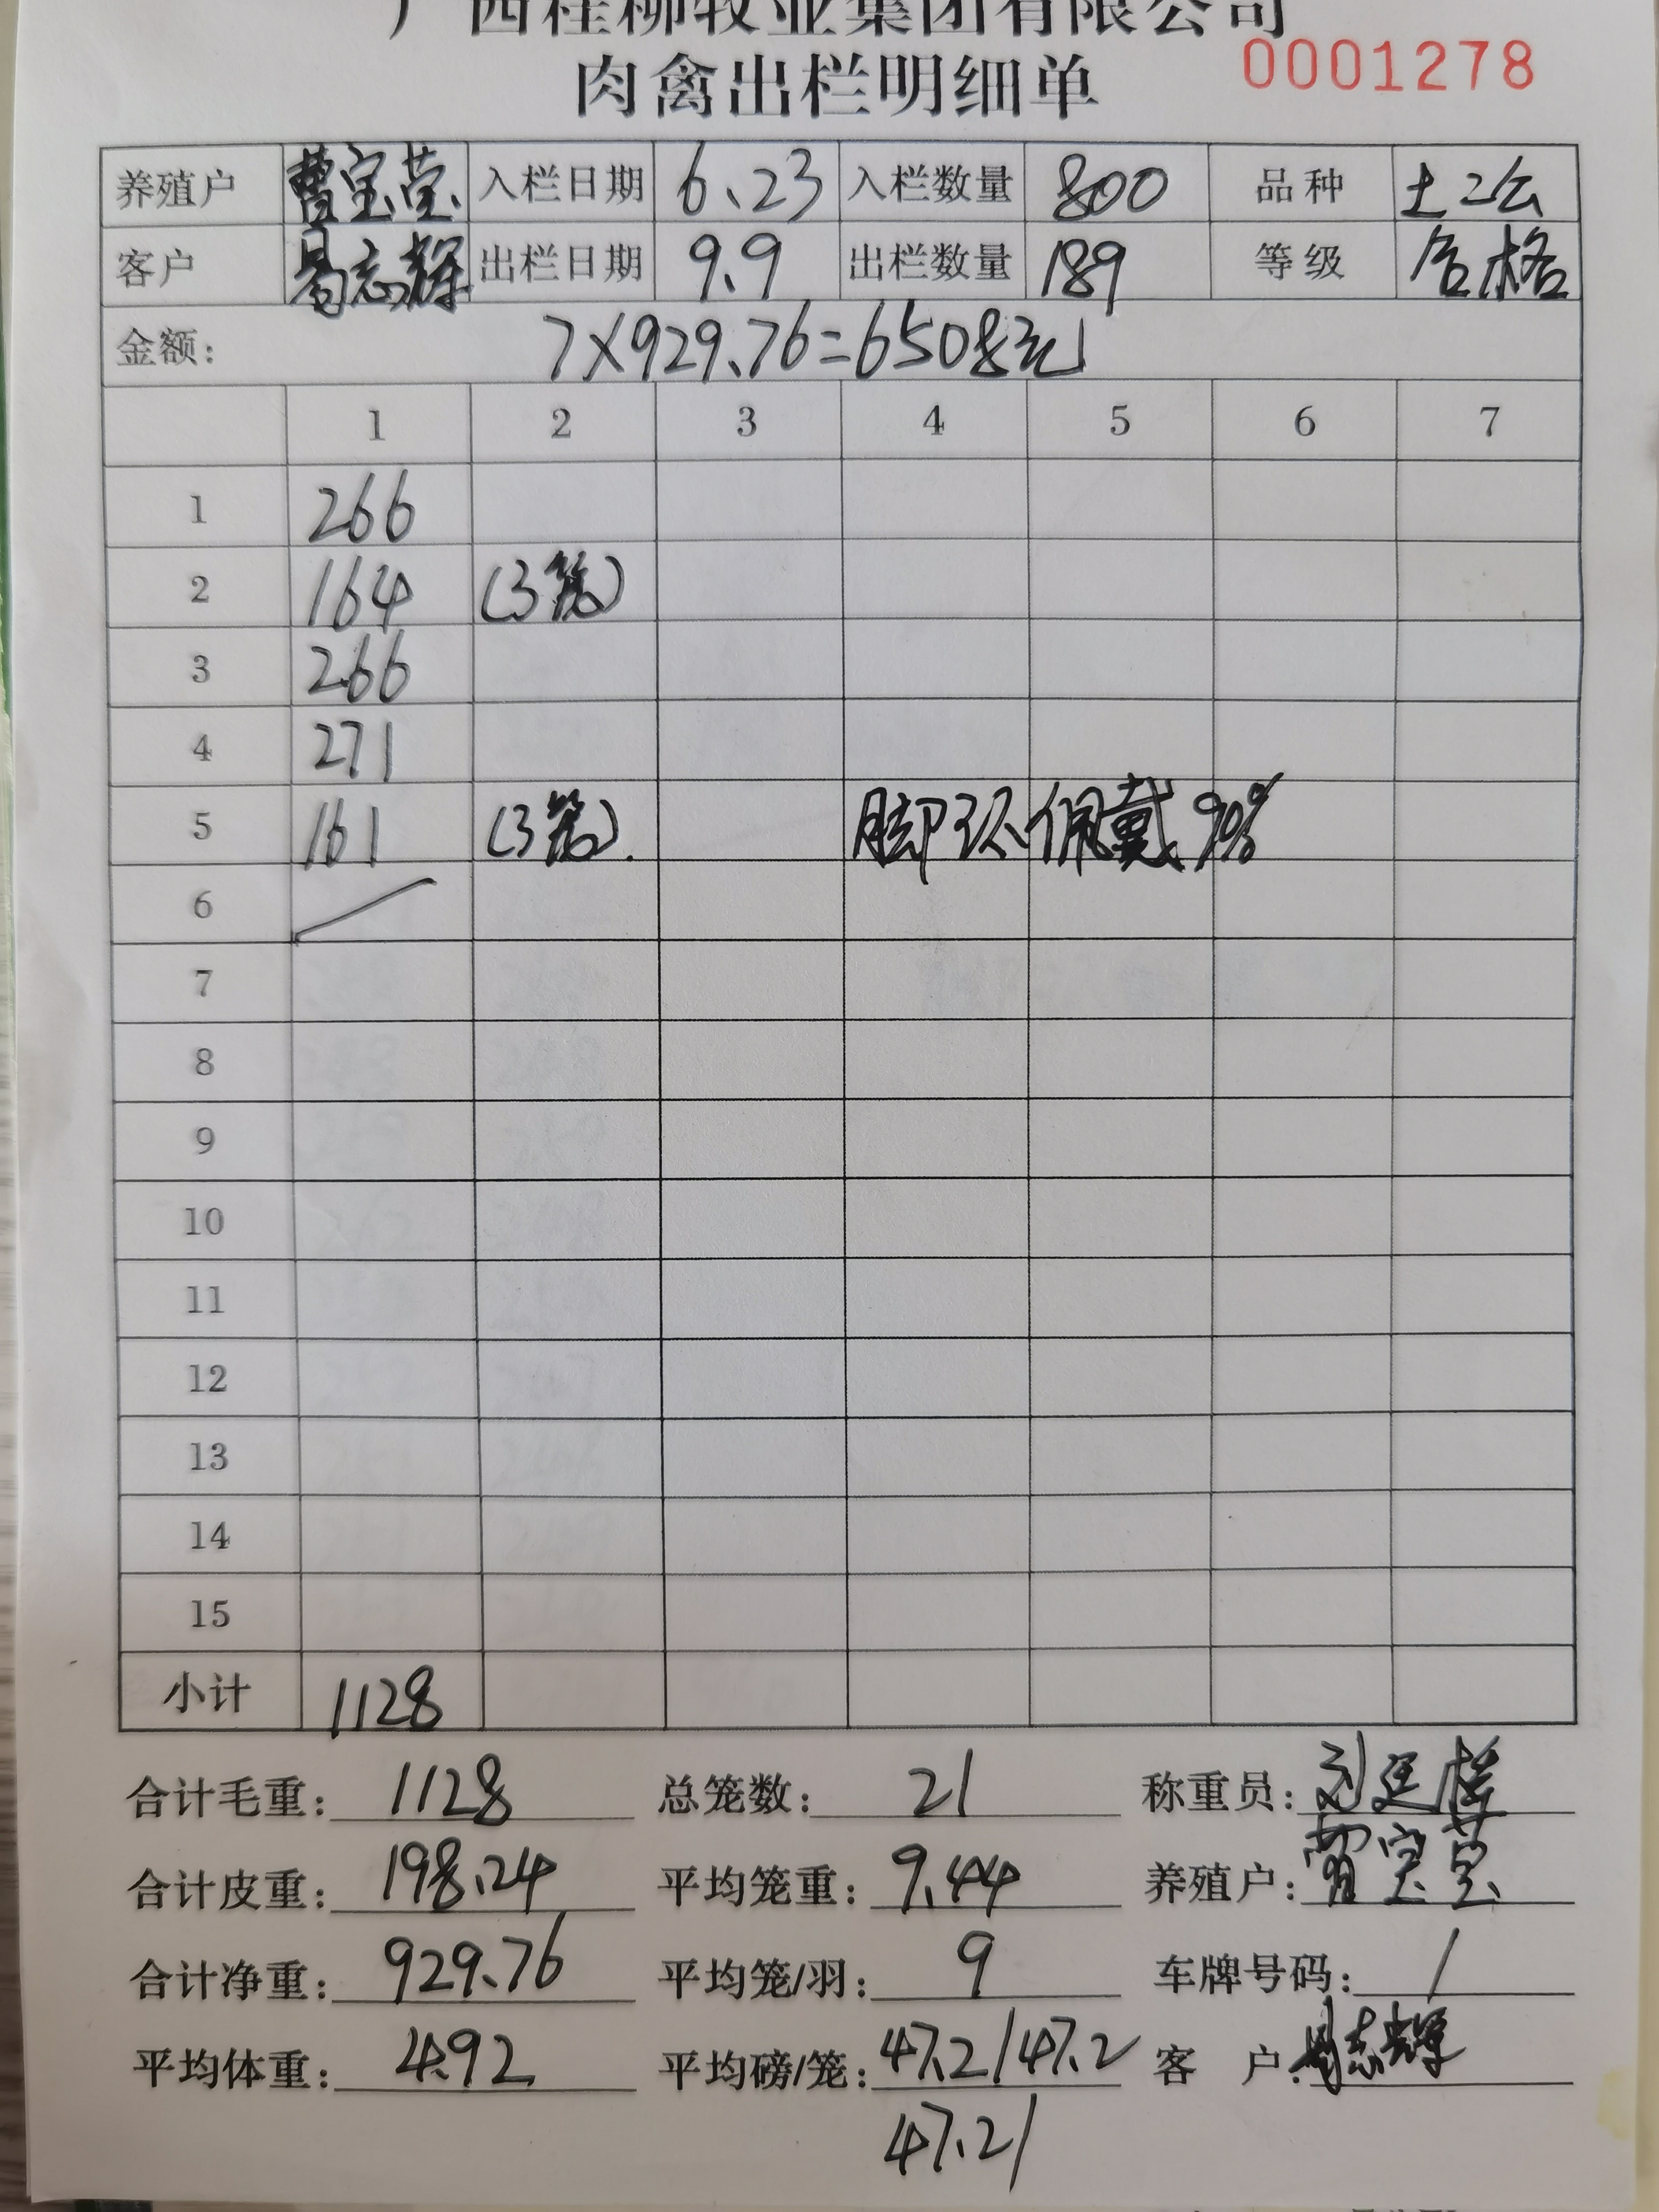 广西桂柳牧业集团有限公司
肉禽出栏明细单 0001278
养殖户 曹宝莹 入栏日期 6.23 入栏数量 800 品种 土2公
客户 易志辉 出栏日期 9.9 出栏数量 189 等级 合格
金额: 7×929.76=6508元
1 2 3 4 5 6 7
1 266
2 164 (3笼)
3 266
4 271
5 161 (3笼). 脚环佩戴90%
6
7
8
9
10
11
12
13
14
15
小计 1128
合计毛重: 1128 总笼数: 21 称重员:
合计皮重: 198.24 平均笼重: 9.44 养殖户: 曹宝莹
合计净重: 929.76 平均笼/羽: 9 车牌号码: /
平均体重: 4.92 平均磅/笼: 47.2/47.2 客 户: 易志辉
47.2/